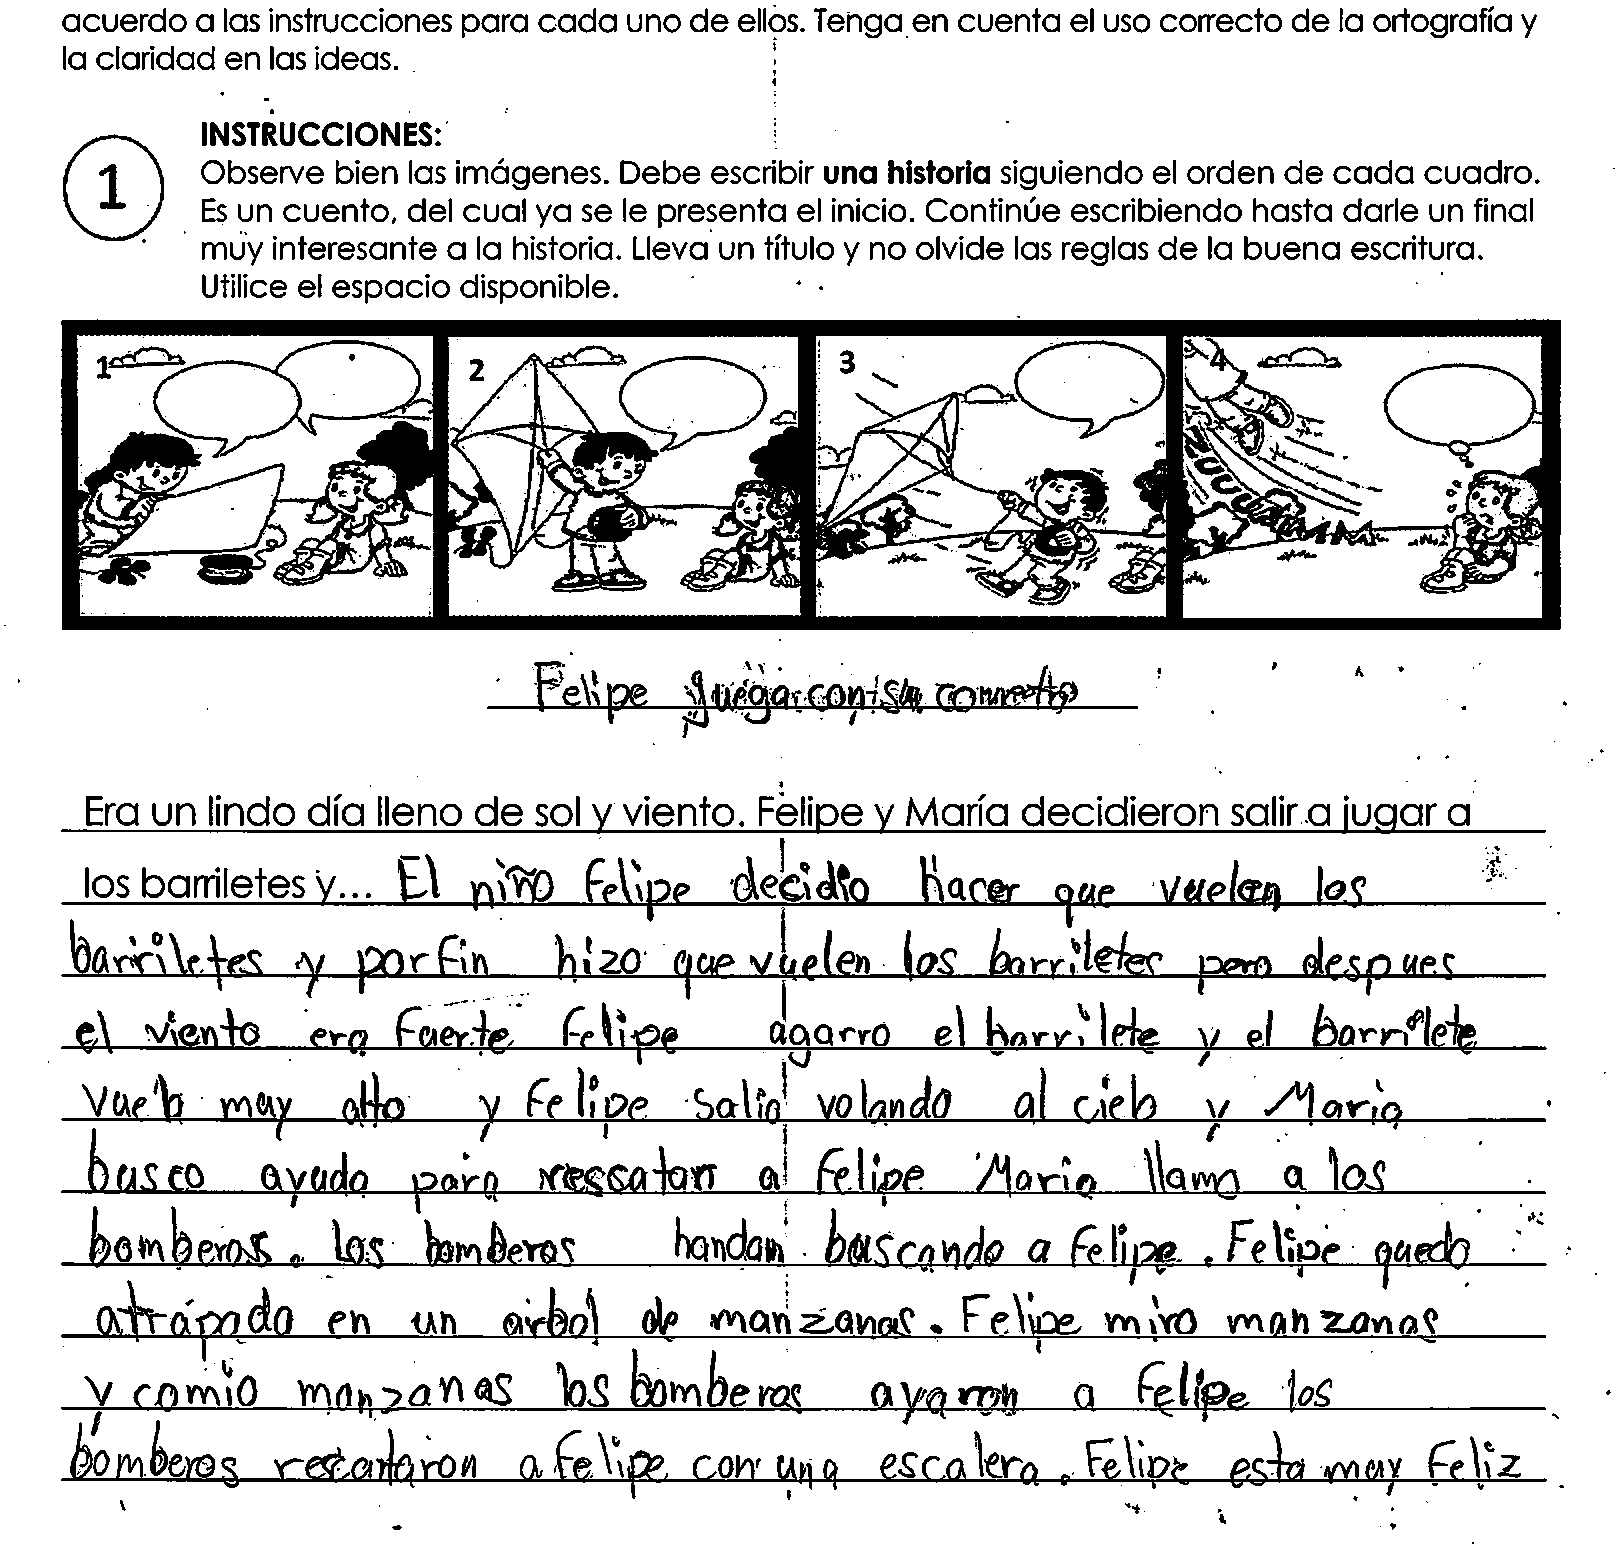 acuerdo a las instrucciones para cada uno de ellos. Tenga en cuenta el uso correcto de la ortografía y
la claridad en las ideas.
INSTRUCCIONES:
1
Observe bien las imágenes. Debe escribir una historia siguiendo el orden de cada cuadro.
Es un cuento, del cual ya se le presenta el inicio. Continúe escribiendo hasta darle un final
muy interesante a la historia. Lleva un título y no olvide las reglas de la buena escritura.
Utilice el espacio disponible.
1 2 3 4
Felipe Juega con su
Era un lindo día lleno de sol y viento. Felipe y María decidieron salir a jugar a
los barriletes y... El niño Felipe decidio hacer que vuelen los
barriletes y por fin hizo que vuelen los barriletes pero despues
el viento era fuerte Felipe agarro el barrilete y el barrilete
vuelo muy alto y Felipe salio volando al cielo y Maria
busco ayuda para rescatan a Felipe Maria llamo a los
bomberos. Los bomberos handan buscando a Felipe. Felipe quedo
atrapado en un arbol de manzanas. Felipe miro manzanas
y comio manzanas los bomberos ayaron a Felipe los
bomberos rescataron a Felipe con una escalera. Felipe esta muy Feliz